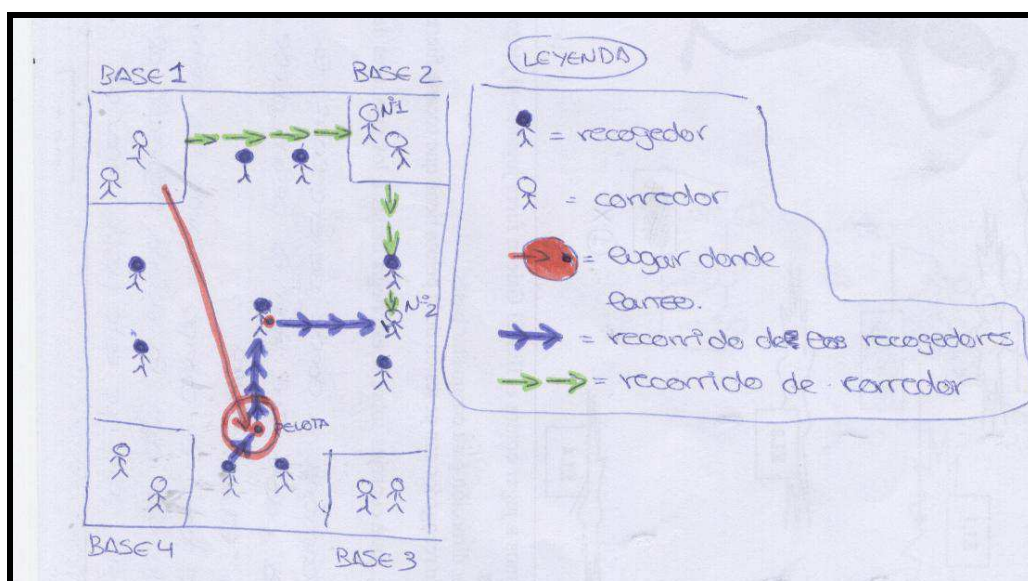 BASE 1
BASE 2
Nº1
Nº2
PELOTA
BASE 4
BASE 3
LEYENDA
= recogedor
= corredor
= lugar donde
lanzo.
= recorrido de los recogedores
= recorrido de corredor